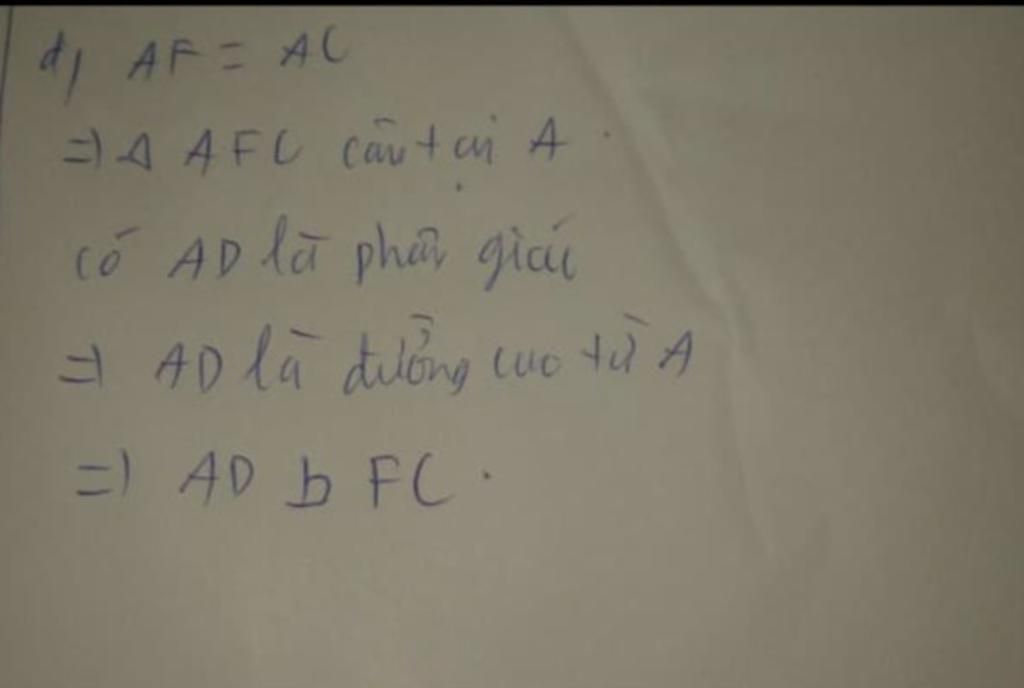 d) AF = AC
=> Δ AFC cân tại A.
có AD là phân giác
=> AD là đường cao từ A
=> AD ⊥ FC.